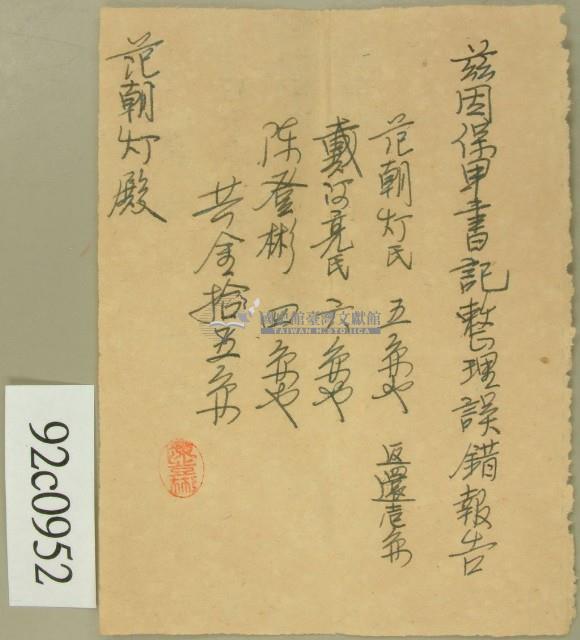 茲因保甲書記整理誤錯報告
范朝灯氏 五円也 返還壱円
戴阿亮氏 六円也
陳登彬 四円也
共金拾五円
范朝灯殿
國史館臺灣文獻館
TAIWAN HISTORICA
92c0952